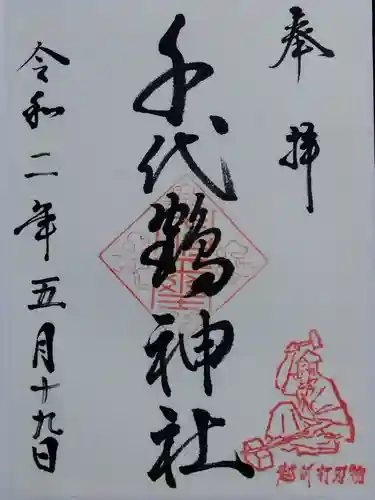 奉拝
千代鶴神社
令和二年五月十九日
越前打刃物